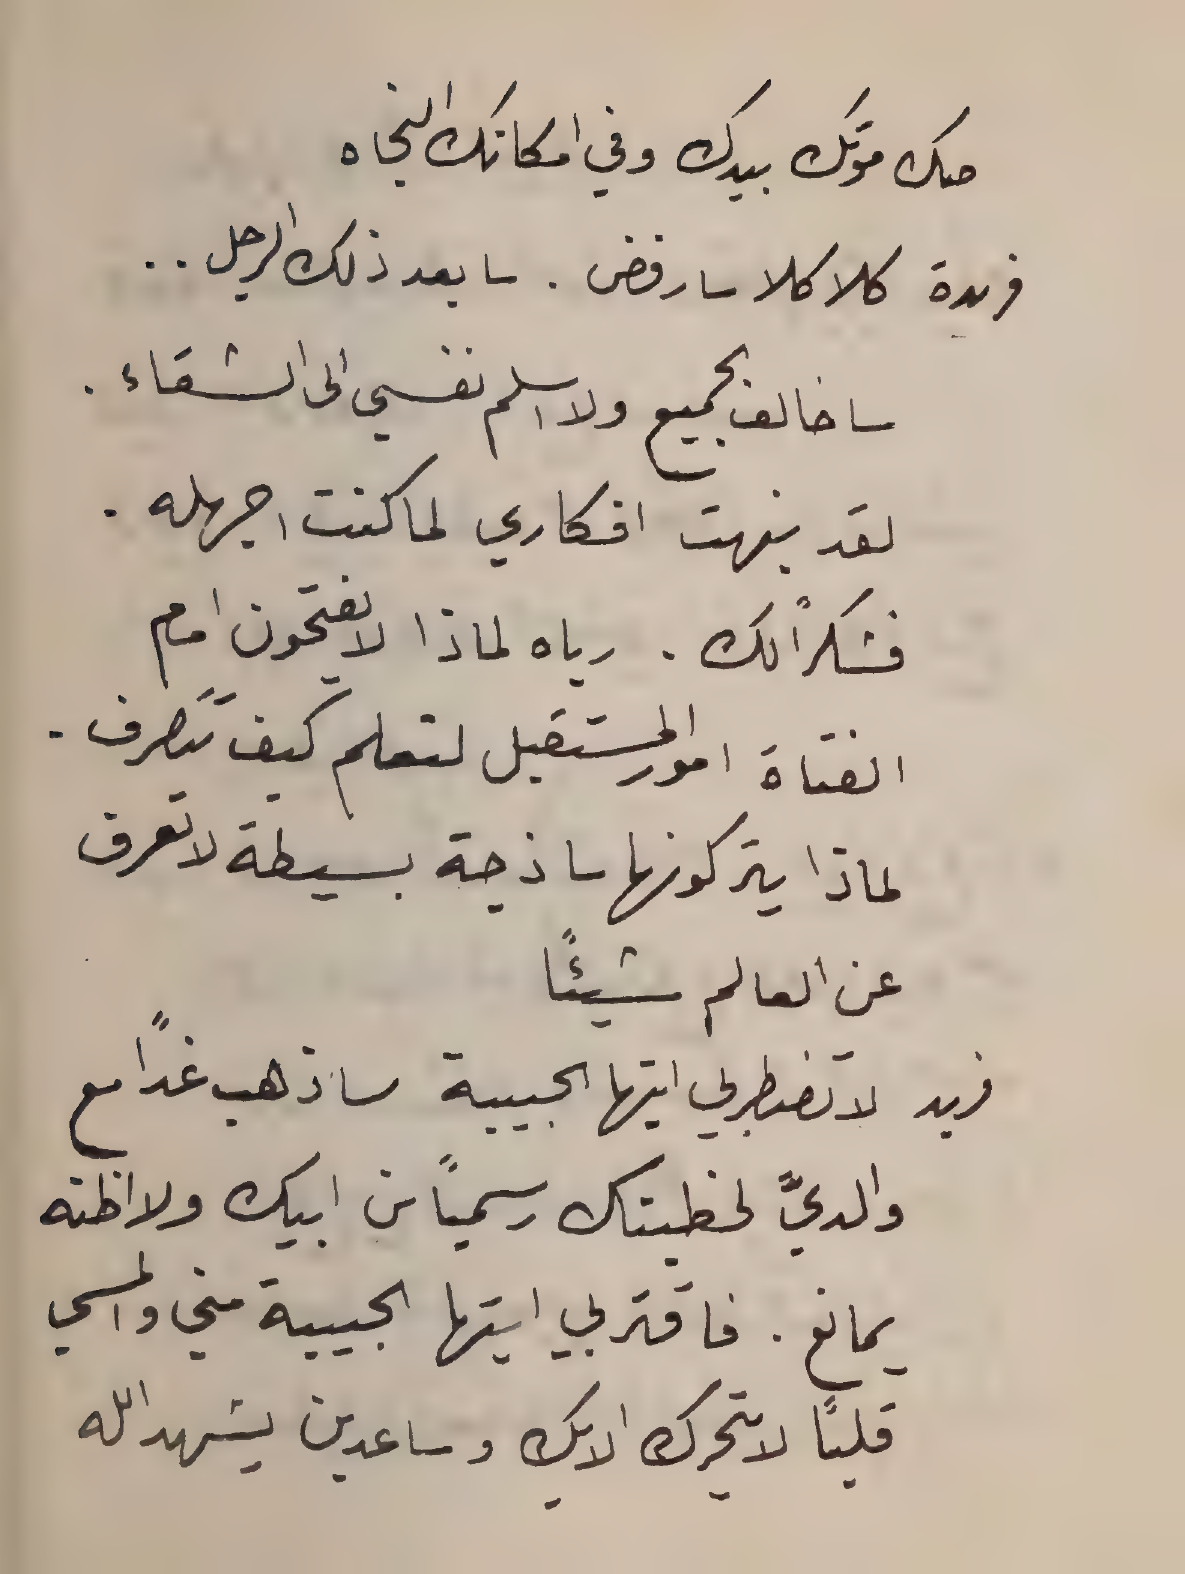 صك موتك بيدك وفي امكانك النجاه
فريدة كلا كلا سارفض . سابعد ذلك الرجل ..
ساخالف الجميع ولا اسلم نفسي الى الشقاء .
لقد نبهت افكاري لما كنت اجهله .
فشكراً لك . رباه لماذا لا يفتحون امام
الفتاة امور المستقبل لتعلم كيف تتصرف .
لماذا يتركونها ساذجة بسيطة لا تعرف
عن العالم شيئًا
فريد لا تضطربي ايتها الحبيبة ساذهب غدًا مع
والديَّ لخطبتك رسمياً من ابيك ولا اظنه
يمانع . فاقتربي ايتها الحبيبة مني والمسي
قلبًا لا يتحرك الا بك وساعدين يشهد الله